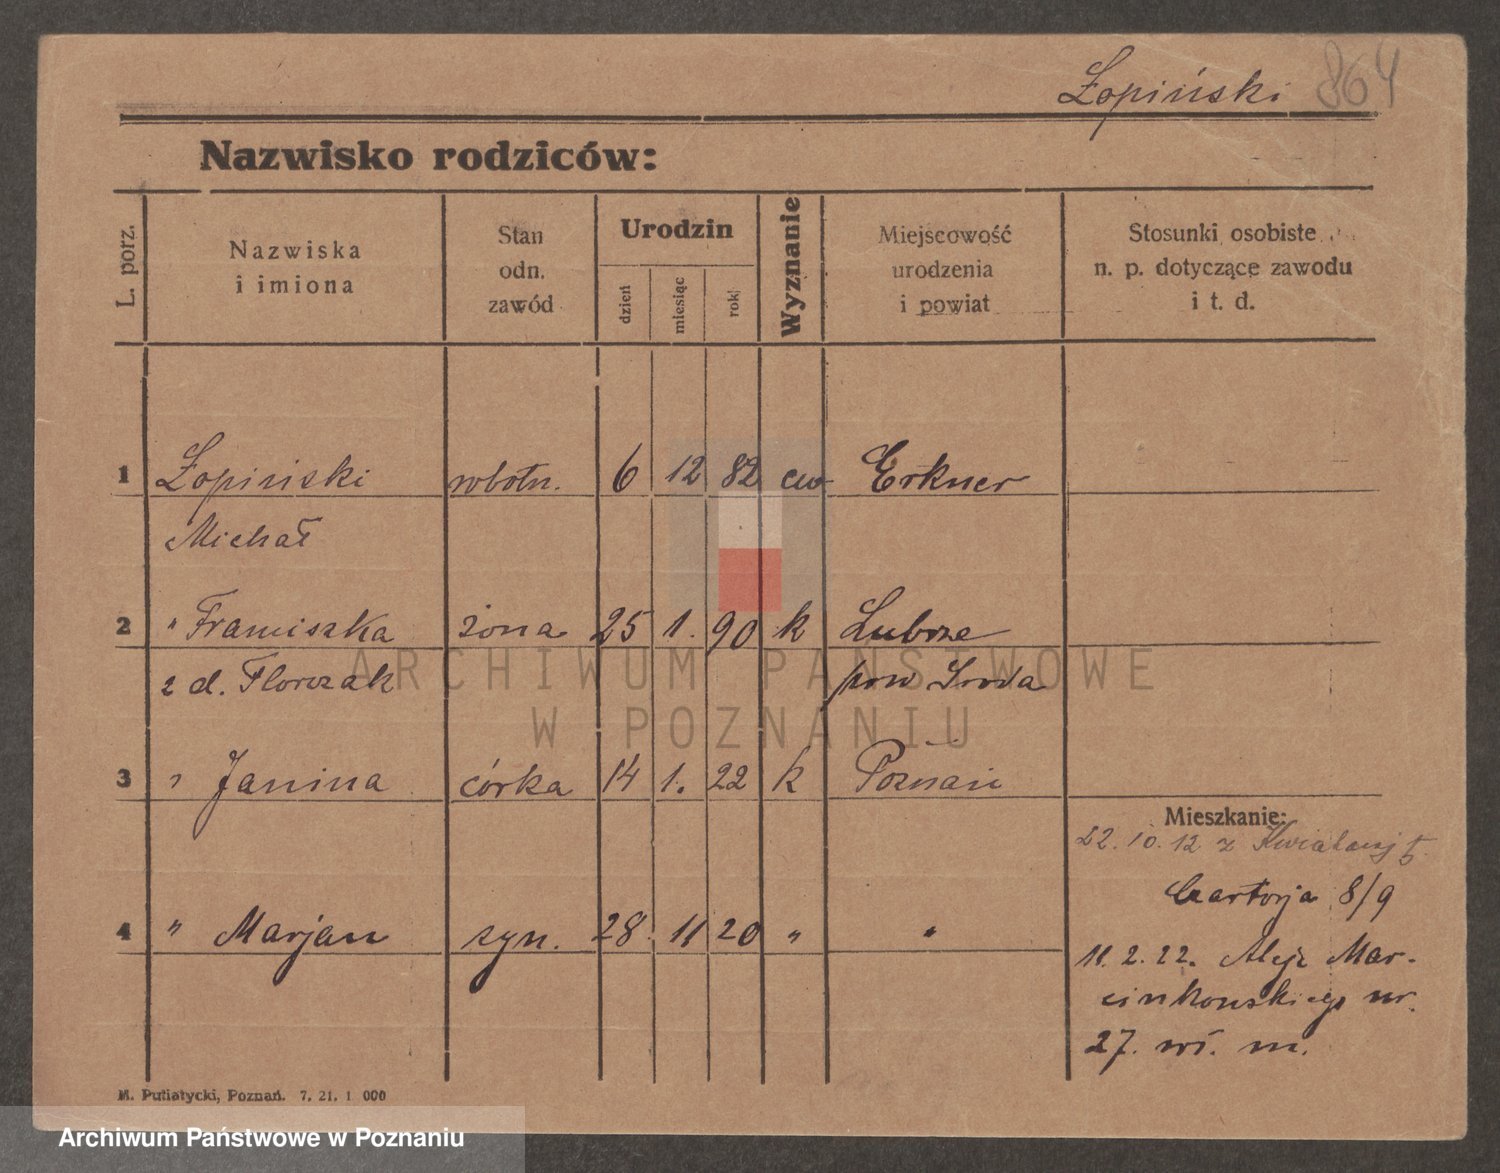 Łopiński 864
Nazwisko rodziców:
L. porz.
Nazwiska
i imiona
Stan
odn.
zawód
Urodzin
dzień
miesiąc
rok
Wyznanie
Miejscowość
urodzenia
i powiat
Stosunki osobiste
n. p. dotyczące zawodu
i t. d.
1 Łopiński robotn. 6 12 82 ew Erkner
Michał
2 " Franciszka żona 25 1. 90 k Lubrze
z d. Florczak pow Środa
3 " Janina córka 14 1. 22 k Poznań
Mieszkanie:
22. 10. 12 z
8/9
4 " Marjan syn. 28. 11 20 " "
11. 2. 22. Aleje Mar-
cinkowskiego nr.
27. wł. m.
M. Putiatycki, Poznań. 7. 21. 1 000
ARCHIWUM PAŃSTWOWE
W POZNANIU
Archiwum Państwowe w Poznaniu